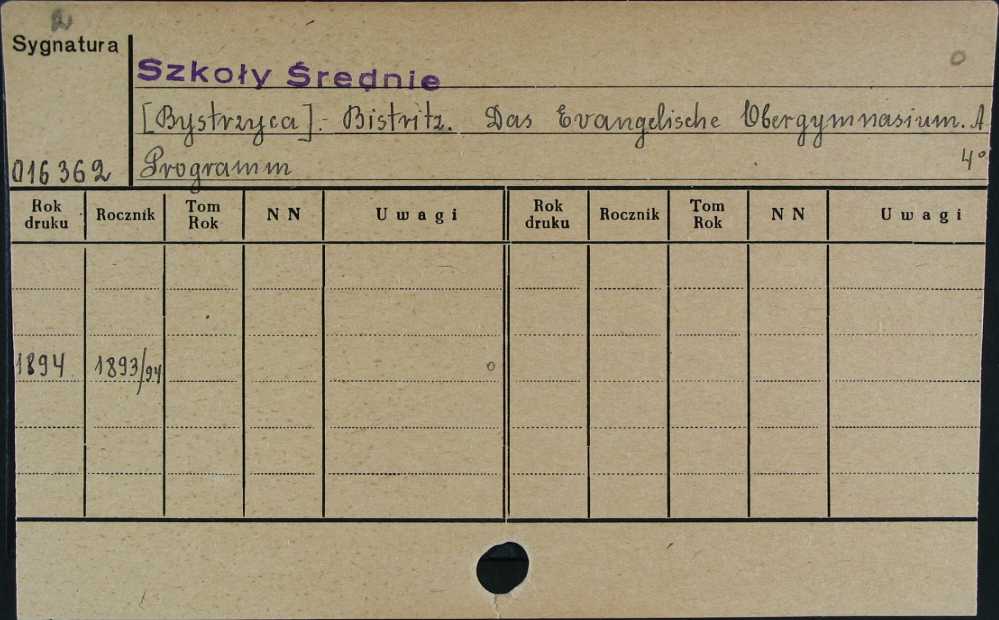 Sygnatura
Szkoły Średnie
[Bystrzyca].- Bistritz. Das Evangelische Obergymnasium. A
016362 Programm 4°
Rok druku Rocznik Tom Rok NN Uwagi Rok druku Rocznik Tom Rok NN Uwagi
1894 1893/94